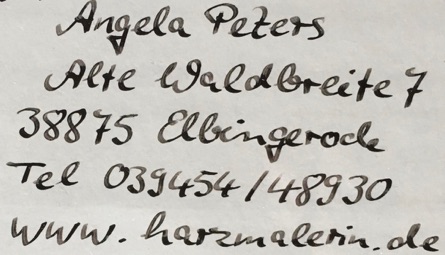 Angela Peters
Alte Waldbreite 7
38875 Elbingerode
Tel 039454/48930
www.harzmalerin.de